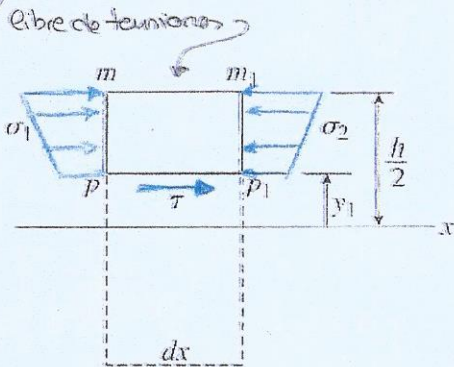 libre de tensiones
m m₁
σ₁ σ₂ h/2
p p₁
τ y₁
x
dx